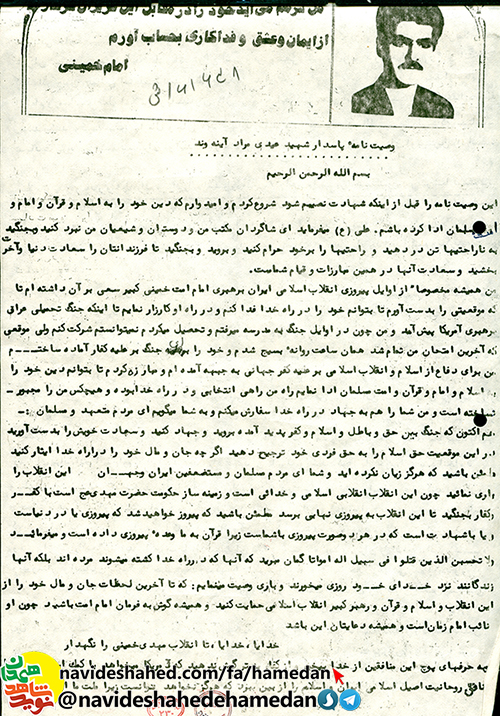 از ایمان و عشق و فداکاری بحساب آورم
امام خمینی
وصیت نامه پاسدار شهید مهدی مراد آینه وند
بسم الله الرحمن الرحیم
این وصیت نامه را قبل از اینکه شهادت نصیبم شود شروع کردم و امیدوارم که دین خود را به اسلام و قرآن و امام و
مسلمان ادا کرده باشم. علی (ع) میفرماید ای شاگردان مکتب من و دوستان و شیعیان من نبرد کنید و بجنگید
به ناراحتیها تن در دهید و راحتیها را برخود حرام کنید و بروید و بجنگید تا فرزندانتان را سعادت دنیا و آخرت
بخشید و سعادت آنها در همین مبارزات و قیام شماست.
من همیشه مخصوصا" از اوایل پیروزی انقلاب اسلامی ایران برهبری امام امت خمینی کبیر سعی بر آن داشته ام تا
که موقعیتی را بدست آورم تا بتوانم خود را در راه خدا فدا کنم و در راه او کارزار نمایم تا اینکه جنگ تحمیلی عراقی
آمریکا پیش آمد و من چون در اوایل جنگ به مدرسه میرفتم و تحصیل میکردم نمیتوانستم شرکت کنم ولی موقعی
که آخرین امتحان من تمام شد همان ساعت روانه بسیج شدم و خود را برای جنگ بر علیه کفار آماده ساختم
من برای دفاع از اسلام و انقلاب اسلامی بر علیه کفر جهانی به جبهه آمده ام و مبارزه کردم تا بتوانم دین خود را
اسلام و امام و قرآن و امت مسلمان ادا نمایم راه من راهی انتخابی و در راه خدا بوده و هیچکس من را مجبور
نساخته است و من شما را هم به جهاد در راه خدا سفارش میکنم و به شما میگویم ای مردم متعهد و مسلمان :
هم اکنون که جنگ بین حق و باطل و اسلام و کفر پدید آمده بروید و جهاد کنید و سعادت خویش را بدست آورید
در این موقعیت حق اسلام را به حق فردی خود ترجیح دهید اگر چه جان و مال خود را در راه خدا ایثار کنید
مطمئن باشید که هرگز زیان نکرده اید و شما ای مردم مسلمان و مستضعفین ایران وجهان این انقلاب را
یاری نمائید چون این انقلاب انقلابی اسلامی و خدائی است و زمینه ساز حکومت حضرت مهدی عج است با کفر
و کفار بجنگید تا این انقلاب به پیروزی نهایی برسد مطمئن باشید که پیروز خواهید شد که پیروزی یا در دنیاست
و یا با شهادت است که در هر دو صورت پیروزی با شماست زیرا قرآن به ما وعده پیروزی داده است و میفرماید
ولا تحسبن الذین قتلوا فی سبیل اله امواتا گمان مبرید که آنها که در راه خدا کشته میشوند مرده اند بلکه آنها
زندگانند نزد خدای خود روزی میخورند و باری وصیت مینمایم: که تا آخرین لحظات جان و مال خود را از
این انقلاب و اسلام و قرآن و رهبر کبیر انقلاب اسلامی حمایت کنید و همیشه گوش به فرمان امام امت باشید چون او
نائب امام زمان است و همیشه دعایتان این باشد
خدایا، خدایا، تا انقلاب مهدی خمینی را نگهدار
به حرفهای پوچ این منافقین از خدا بیخبر
navideshahed.com/fa/hamedan
@navideshahedehamedan